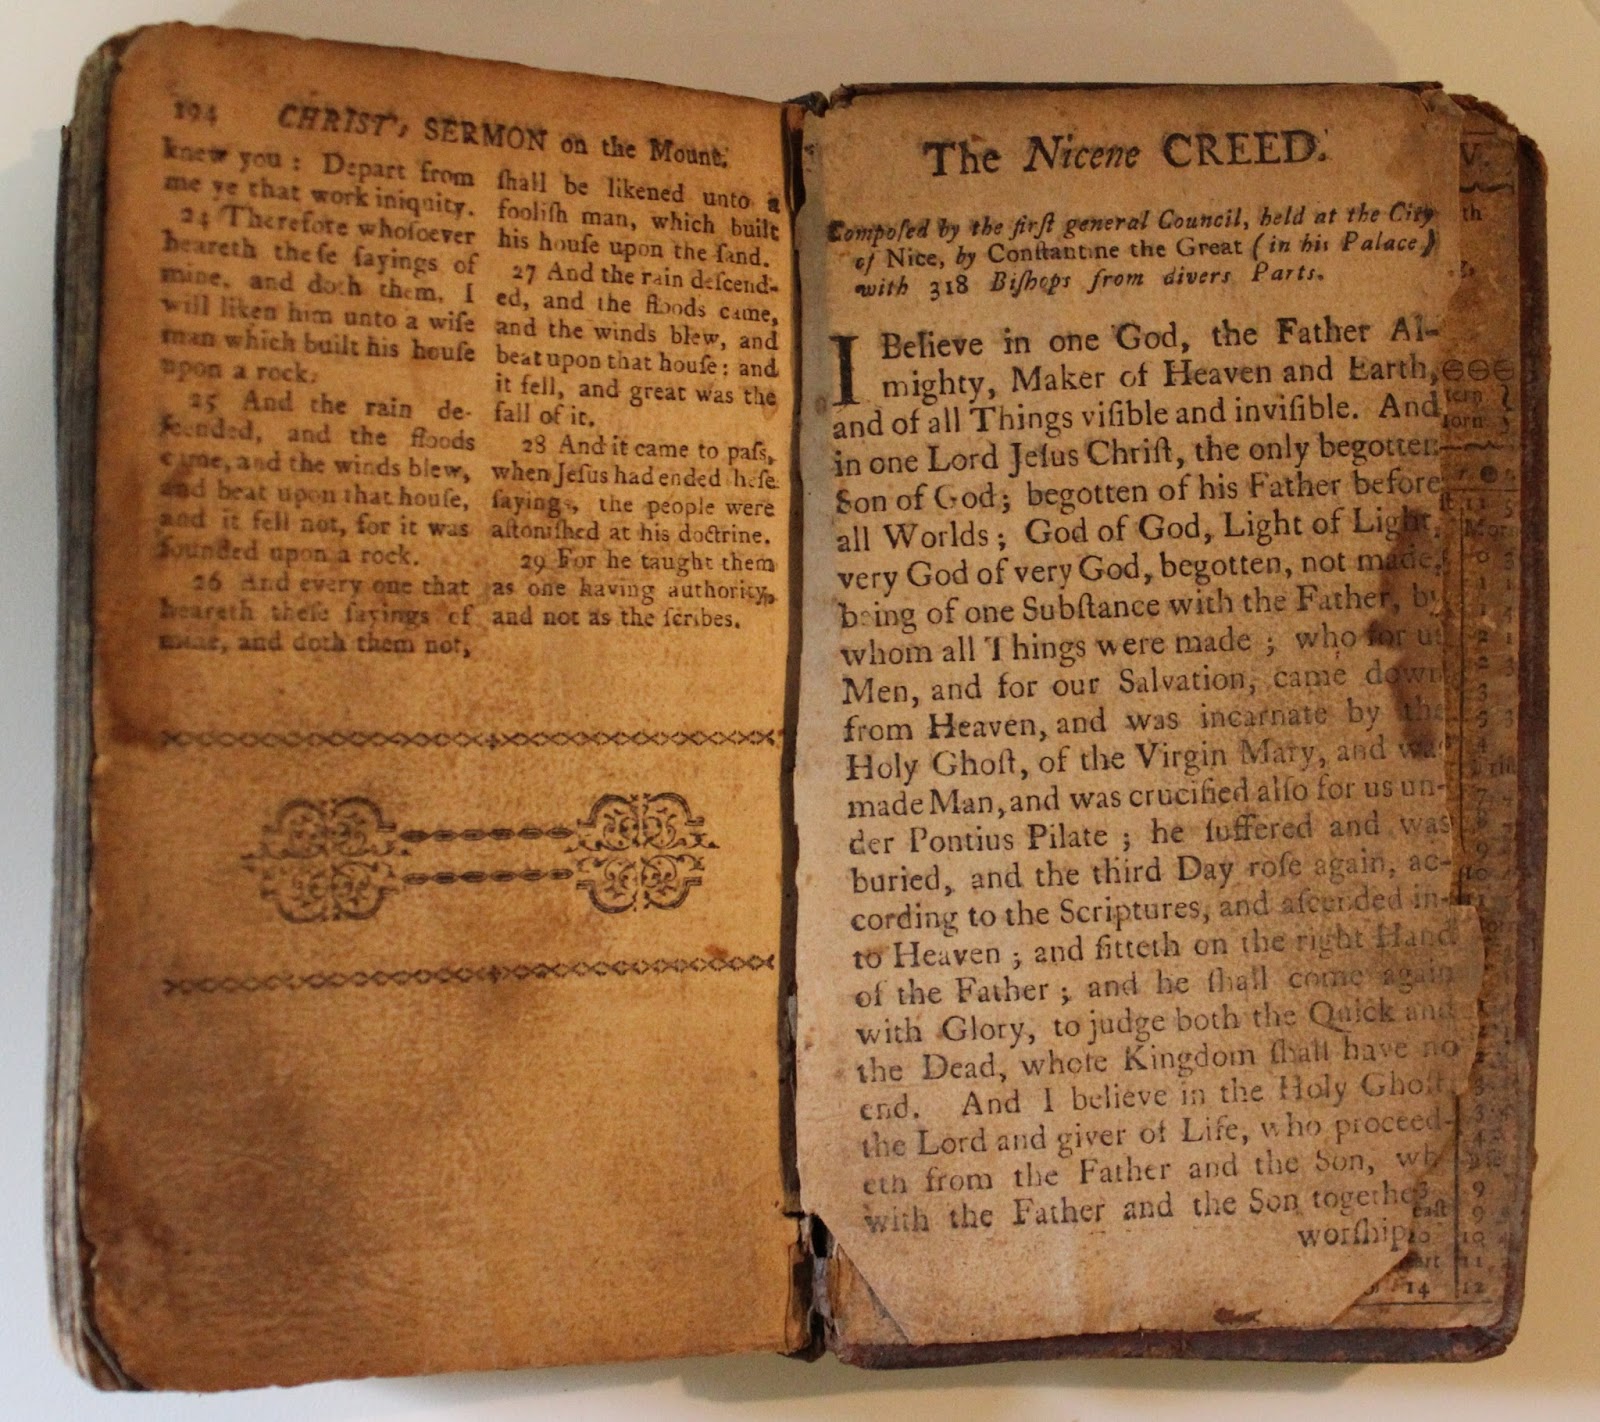 194 CHRIST's SERMON on the Mount.
knew you : Depart from
me ye that work iniquity.
24 Therefore whoſoever
heareth theſe ſayings of
mine, and doth them, I
will liken him unto a wiſe
man which built his houſe
upon a rock.
25 And the rain de-
ſcended, and the floods
came, and the winds blew,
and beat upon that houſe,
and it fell not, for it was
founded upon a rock.
26 And every one that
heareth theſe ſayings of
mine, and doth them not,
ſhall be likened unto a
fooliſh man, which built
his houſe upon the ſand.
27 And the rain deſcend-
ed, and the floods came,
and the winds blew, and
beat upon that houſe : and
it fell, and great was the
fall of it.
28 And it came to paſs,
when Jeſus had ended heſe
ſayings, the people were
aſtoniſhed at his doctrine.
29 For he taught them
as one having authority,
and not as the ſcribes.
The Nicene CREED.
Compoſed by the firſt general Council, held at the City
of Nice, by Conſtantine the Great (in his Palace)
with 318 Biſhops from divers Parts.
I Believe in one God, the Father Al-
mighty, Maker of Heaven and Earth,
and of all Things viſible and inviſible. And
in one Lord Jeſus Chriſt, the only begotten
Son of God; begotten of his Father before
all Worlds ; God of God, Light of Light,
very God of very God, begotten, not made,
being of one Subſtance with the Father, by
whom all Things were made ; who for us
Men, and for our Salvation, came down
from Heaven, and was incarnate by the
Holy Ghoſt, of the Virgin Mary, and was
made Man, and was crucified alſo for us un-
der Pontius Pilate ; he ſuffered and was
buried, and the third Day roſe again, ac-
cording to the Scriptures, and aſcended in-
to Heaven ; and ſitteth on the right Hand
of the Father ; and he ſhall come again
with Glory, to judge both the Quick and
the Dead, whoſe Kingdom ſhall have no
end. And I believe in the Holy Ghoſt,
the Lord and giver of Life, who proceed-
eth from the Father and the Son, wh
with the Father and the Son together
worſhip